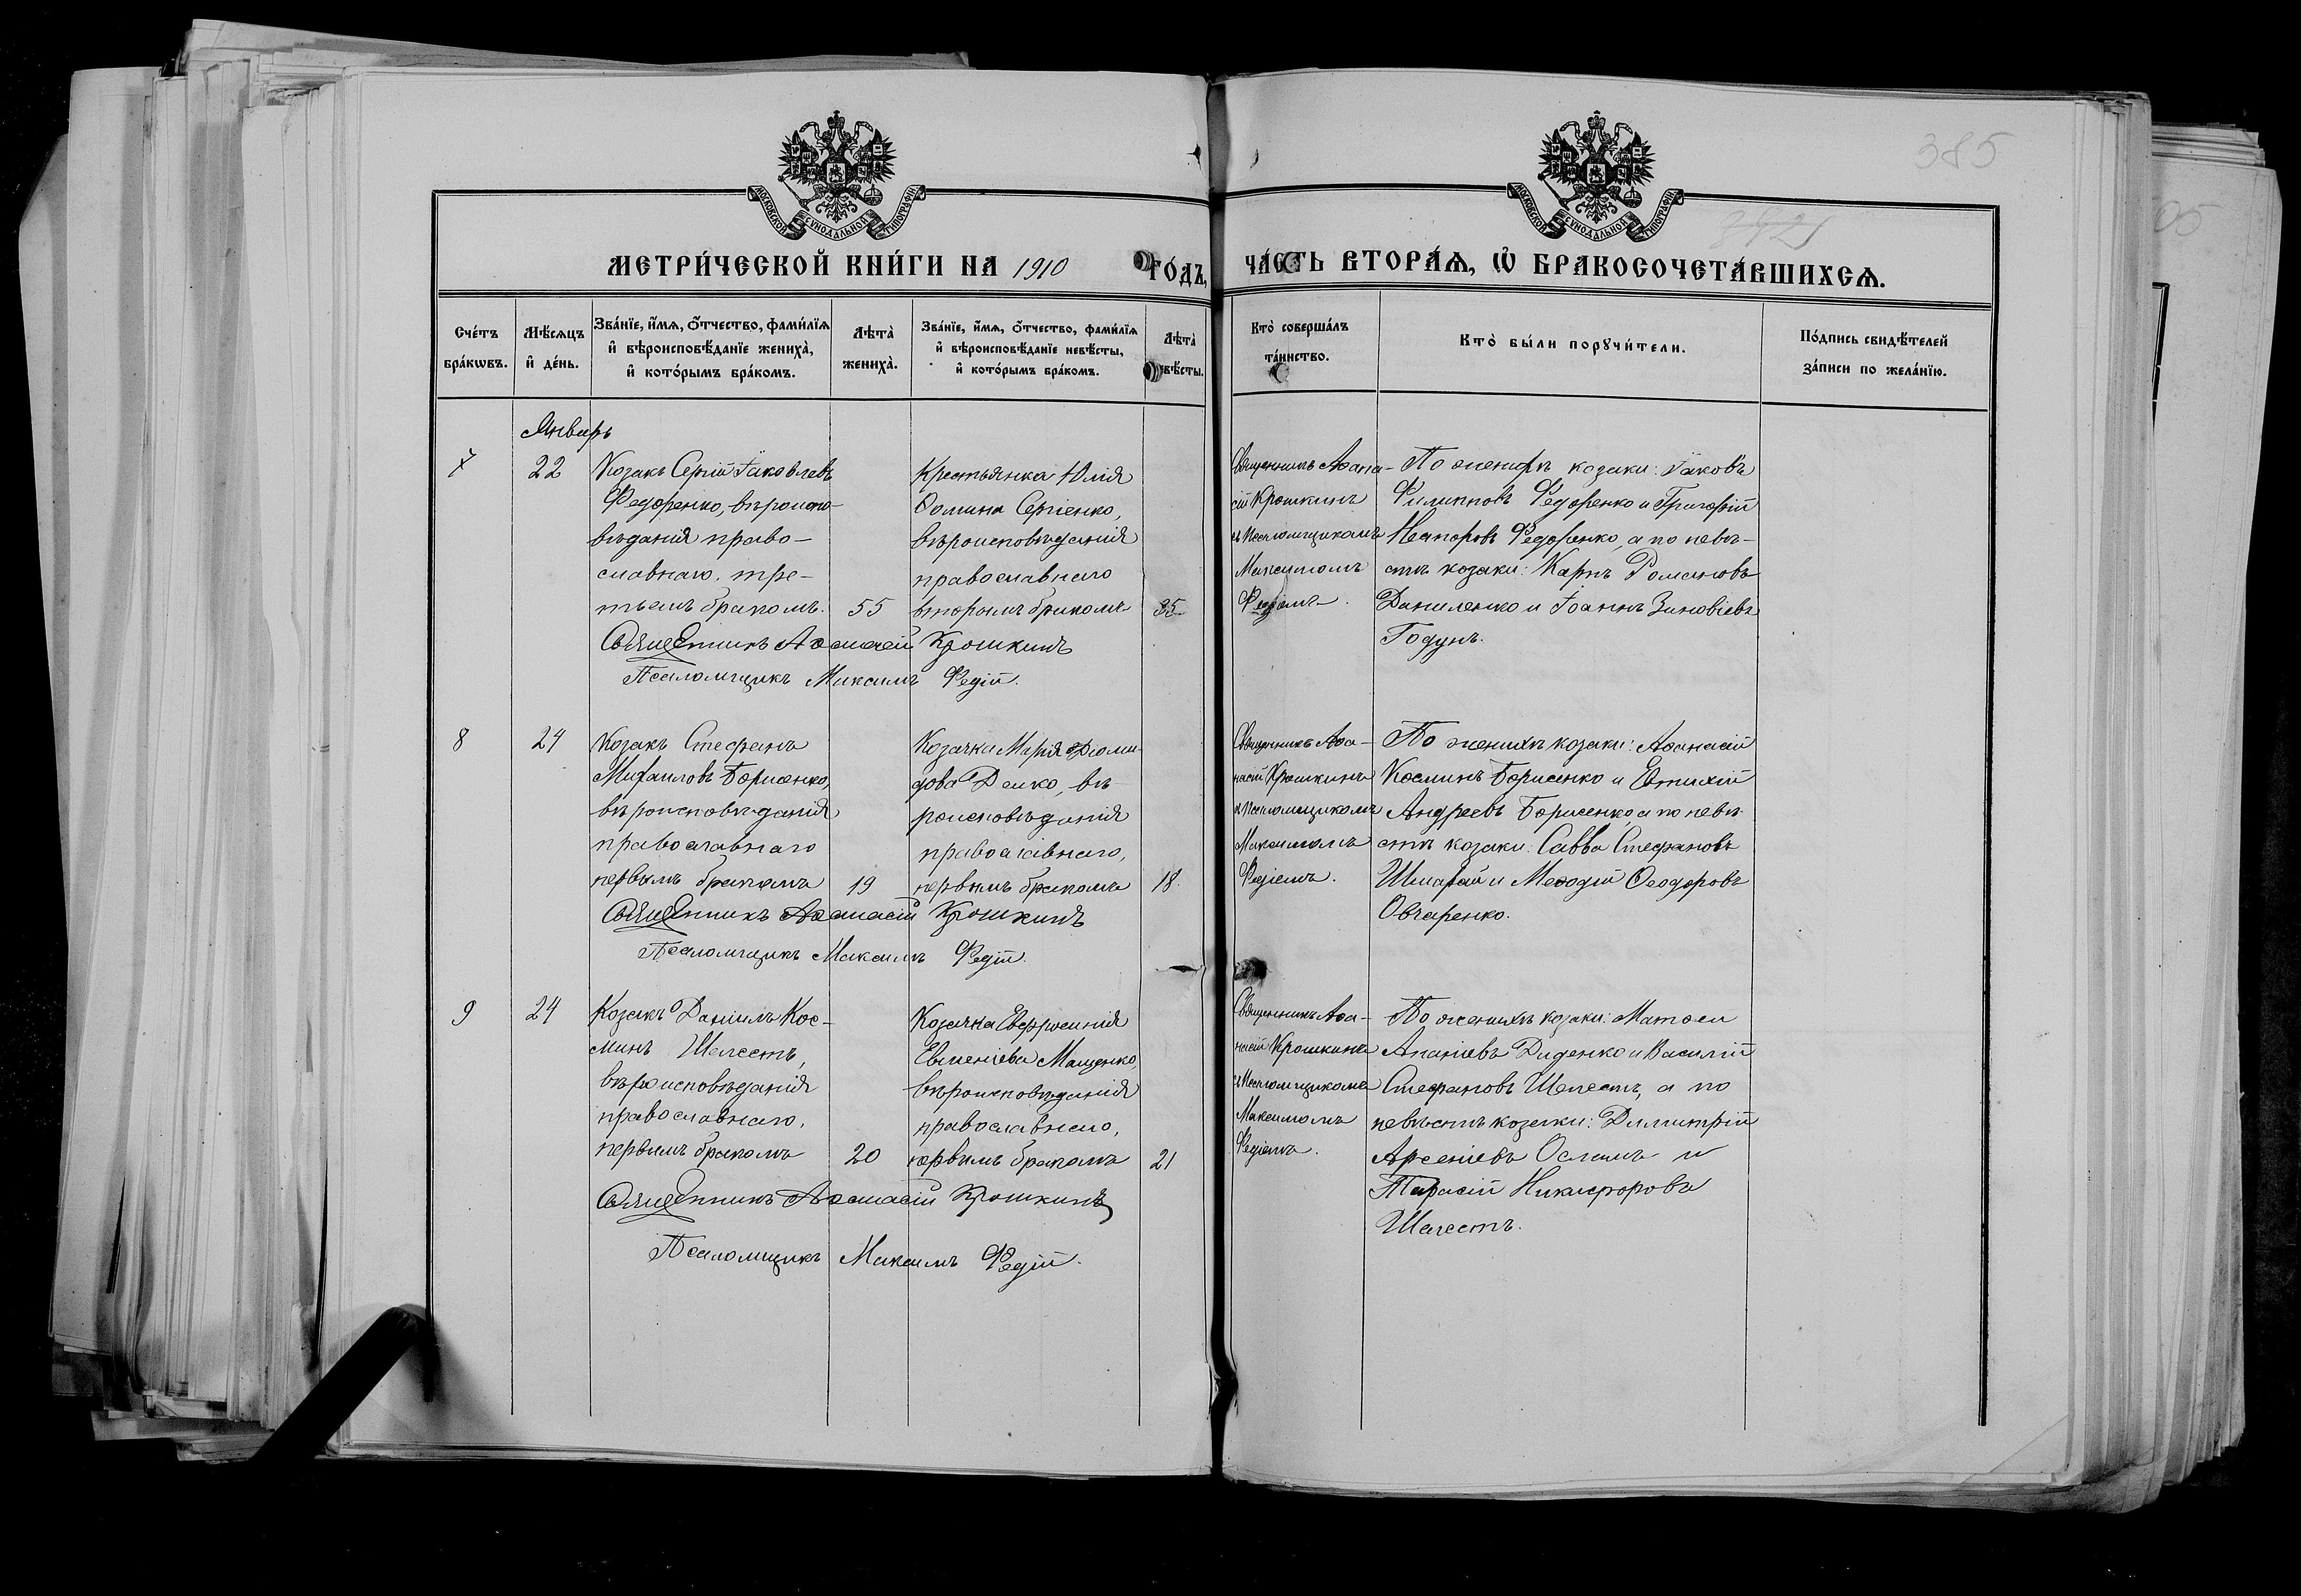 385
МОСКОВСКОЙ СѴНОДАЛЬНОЙ ТИПОГРАФІИ
МОСКОВСКОЙ СѴНОДАЛЬНОЙ ТИПОГРАФІИ
МЕТРИ́ЧЕСКОЙ КНИ́ГИ НА 1910 ГО́ДЪ,
ЧА́СТЬ ВТОРА́Ѧ, Ѡ҆ БРАКОСОЧЕТА́ВШИХСѦ.
Сче́тъ бра́кѡвъ.
Мѣ́сяцъ и҆ де́нь.
Зва́нїе, и҆́мѧ, ѻ҆́тчество, фами́лїѧ
и҆ вѣроисповѣ́данїе жениха̀,
и҆ кото́рымъ бра́комъ.
Лѣта̀ жениха̀.
Зва́нїе, и҆́мѧ, ѻ҆́тчество, фами́лїѧ
и҆ вѣроисповѣ́данїе невѣ́сты,
и҆ кото́рымъ бра́комъ.
Лѣта̀ невѣ́сты.
Кто̀ соверша́лъ
та́инство.
Кто̀ бы́ли порꙋчи́тели.
По́дпись свидѣ́телей
за́писи по жела́нїю.
Январь
7
22
Козакъ Сергій Іаковлевъ
Федоренко, вѣроиспо-
вѣданія право-
славнаго, тре-
тьимъ бракомъ.
55
Крестьянка Юлія
Ѳомина Сергіенко,
вѣроисповѣданія
православнаго
вторымъ бракомъ
35
Священникъ Аѳана-
сій Крошкинъ
съ псаломщикомъ
Максимомъ
Федіемъ.
По женихѣ козаки: Іаковъ
Филипповъ Федоренко и Григорій
Несторовъ Федоренко, а по невѣ-
стѣ козаки: Карпъ Романовъ
Даниленко и Іоаннъ Зиновіевъ
Годунъ.
Священникъ Аѳанасій Крошкинъ
Псаломщикъ Максимъ Федій.
8
24
Козакъ Стефанъ
Михаиловъ Борисенко,
вѣроисповѣданія
православнаго
первымъ бракомъ
19
Козачка Марія Діоми-
дова Демко, вѣ-
роисповѣданія
православнаго,
первымъ бракомъ
18.
Священникъ Аѳа-
насій Крошкинъ
съ псаломщикомъ
Максимомъ
Федіемъ.
По женихѣ козаки: Аѳанасій
Косминъ Борисенко и Евтихій
Андреевъ Борисенко, а по невѣ-
стѣ козаки: Савва Стефановъ
Шмарай и Меѳодій Ѳеодоровъ
Овчаренко.
Священникъ Аѳанасій Крошкинъ
Псаломщикъ Максимъ Федій.
9
24
Козакъ Даніилъ Кос-
минъ Шелестъ,
вѣроисповѣданія
православнаго,
первымъ бракомъ
20
Козачка Евфросинія
Евменіева Мащенко,
вѣроисповѣданія
православнаго,
первымъ бракомъ
21
Священникъ Аѳа-
насій Крошкинъ
съ псаломщикомъ
Максимомъ
Федіемъ.
По женихѣ козаки: Матѳеи
Ананіевъ Диденко и Василій
Стефановъ Шелестъ, а по
невѣстѣ козаки: Димитрій
Арсеніевъ Осламъ и
Тарасій Никифоровъ
Шелестъ.
Священникъ Аѳанасій Крошкинъ
Псаломщикъ Максимъ Федій.